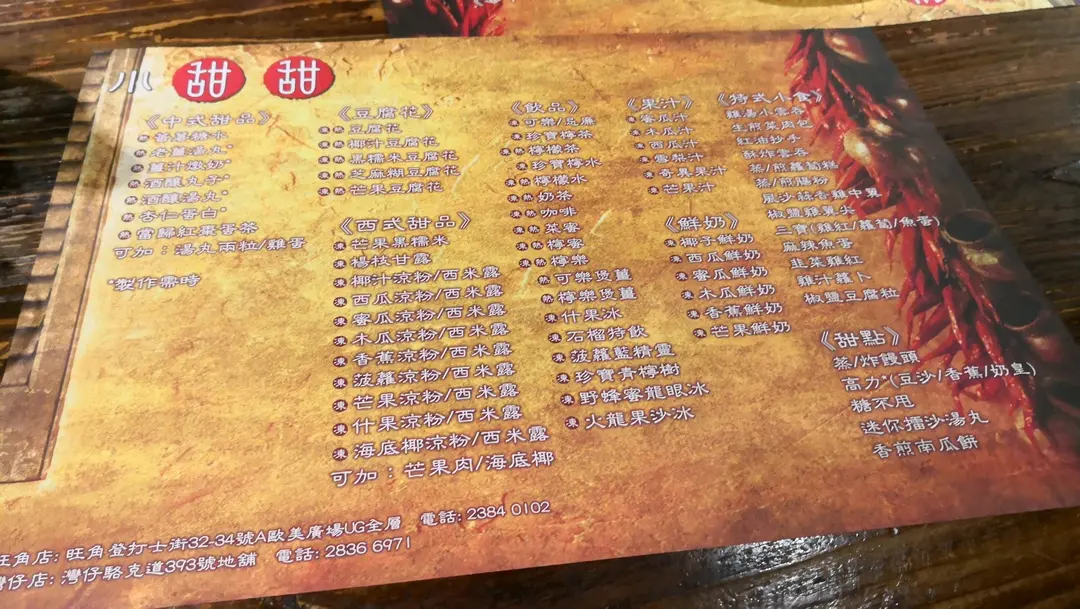 小甜甜
《中式甜品》
熱 蕃薯糖水
熱 老薑湯丸*
熱 薑汁燉奶*
熱 酒釀丸子*
熱 酒釀湯丸*
熱 杏仁蛋白*
熱 當歸紅棗蛋茶
可加：湯丸兩粒/雞蛋
*製作需時
《豆腐花》
凍熱 豆腐花
凍熱 椰汁豆腐花
凍熱 黑糯米豆腐花
凍熱 芝麻糊豆腐花
凍熱 芒果豆腐花
《西式甜品》
凍 芒果黑糯米
凍 楊枝甘露
凍 椰汁涼粉/西米露
凍 西瓜涼粉/西米露
凍 蜜瓜涼粉/西米露
凍 木瓜涼粉/西米露
凍 香蕉涼粉/西米露
凍 菠蘿涼粉/西米露
凍 芒果涼粉/西米露
凍 什果涼粉/西米露
凍 海底椰涼粉/西米露
可加：芒果肉/海底椰
《飲品》
凍 可樂/忌廉
凍熱 珍寶檸茶
凍熱 檸檬茶
凍熱 珍寶檸水
凍熱 檸檬水
凍熱 奶茶
凍熱 咖啡
凍熱 菜蜜
凍熱 檸蜜
凍熱 檸樂
熱 可樂煲薑
熱 檸樂煲薑
凍 什果冰
凍 石榴特飲
凍 菠蘿藍精靈
凍 珍寶青檸樹
凍 野蜂蜜龍眼冰
凍 火龍果沙冰
《果汁》
凍 蜜瓜汁
凍 木瓜汁
凍 西瓜汁
凍 雪梨汁
凍 奇異果汁
凍 芒果汁
《鮮奶》
凍 椰子鮮奶
凍 西瓜鮮奶
凍 蜜瓜鮮奶
凍 木瓜鮮奶
凍 香蕉鮮奶
凍 芒果鮮奶
《特式小食》
雞湯小雲吞
生煎菜肉包
紅油抄手
酥炸雲吞
蒸/煎蘿蔔糕
蒸/煎腸粉
風沙蒜香雞中翼
椒鹽雞翼尖
三寶(雞紅/蘿蔔/魚蛋)
麻辣魚蛋
韭菜雞紅
雞汁蘿卜
椒鹽豆腐粒
《甜點》
蒸/炸饅頭
高力*(豆沙/香蕉/奶皇)
糖不甩
迷你擂沙湯丸
香煎南瓜餅
旺角店: 旺角登打士街32-34號A歐美廣場UG全層 電話: 2384 0102
灣仔店: 灣仔駱克道393號地舖 電話: 2836 6971